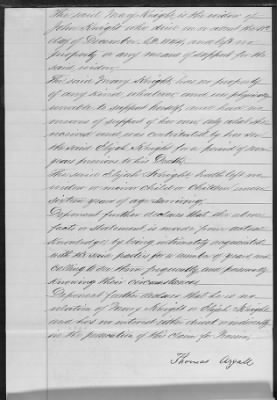 The said Mary Knight is the widow of
John Knight who died on or about the
day of December A.D. 1844 and left no
property or any means of support for the
said widow.
The said Mary Knight has no property
of any kind whatever and is physically
unable to support herself, and has no
means of support of her own only what she
received and was contributed by her son
the said Elijah Knight for a period of
years previous to his Death.
The said Elijah Knight hath left no
widow or minor Child or Children under
sixteen years of age surviving.
Deponent further declares that the above
facts or statement is made from actual
knowledge by being intimately acquainted
with the said parties for a number of years and
calling to see them frequently and personally
knowing their circumstances
Deponent further declares that he is no
relation of Mary Knight or Elijah Knight
and has no interest either direct or indirectly
in the prosecution of this claim for Pension.
Thomas